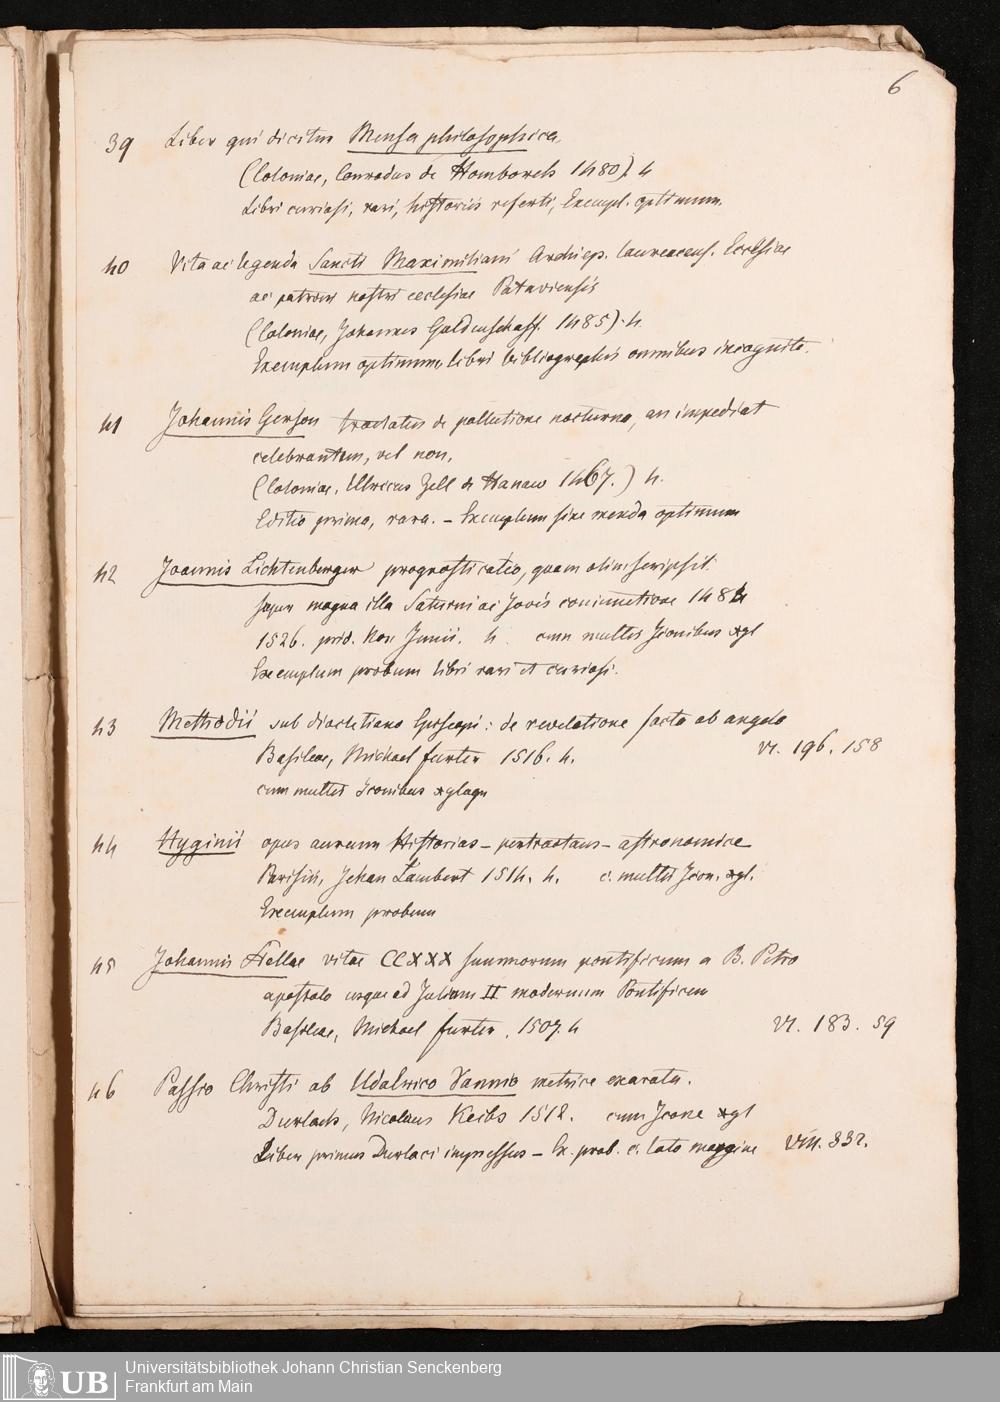 6
39 Liber qui dicitur Mensa philosophica
(Coloniae, Conradus de Homborch 1480). 4
Libri curiosi, rari, historiis referti, Exempl. optimum.
40 Vita ac legenda Sancti Maximiliani Archiep. laureacens. Ecclesiae
ac patroni nostri ecclesiae Pataviensis
(Coloniae, Johannes Guldenschaff. 1485). 4.
Exemplum optimum, libri bibliographis omnibus incogniti.
41 Johannis Gerson tractatus de pollutione nocturna, an impediat
celebrantem, vel non.
(Coloniae, Ulricus Zell de Hanau 1467.) 4.
Editio prima, rara. – Exemplum sine menda optimum
42 Joannis Lichtenberger prognosticatio, quam olim scripsit
super magna illa Saturni ac Jovis coniunctione 1484
1526. prid. Non Junii. 4. cum multis Iconibus xgl
Exemplum probum libri rari et curiosi.
43 Methodii sub diocletiano : de revelatione facta ab angelo
Basileae, Michael furter 1516. 4. VI. 196. 158
cum multis Iconibus
44 Hyginii opus aureum Historias – pertractans – astronomice
Parisiis, Jehan Lambert 1514. 4. c. multis Icon. xgl.
Exemplum probum
45 Johannis Stellae vitae CCXXX summorum pontificum a B. Petro
apostolo usque ad Julium II modernum Pontificem
Basileae, Michael furter, 1507. 4 VI. 183. 59
46 Passio Christi ab Udalrico Vannio metrice exarata.
Durlach, Nicolaus Keibs 1512. cum Icone xgl
Liber primus Durlaci impressus – Ex. prob. c. lato margine VIII. 332.
UB
Universitätsbibliothek Johann Christian Senckenberg
Frankfurt am Main